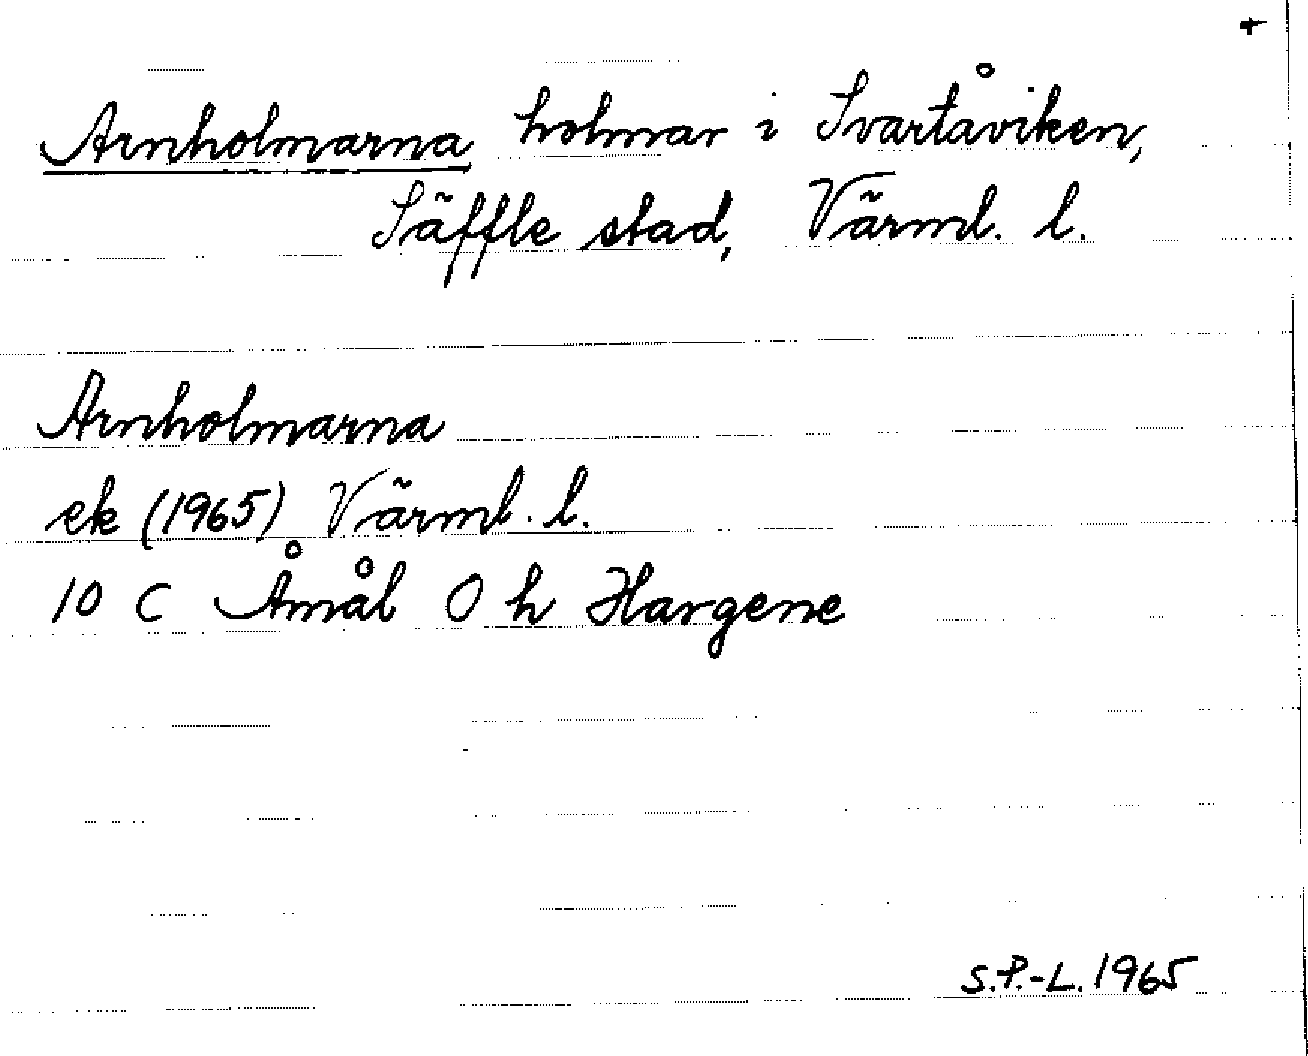 +
Arnholmarna holmar i Svartåviken,
Säffle stad, Värml. l.
Arnholmarna
ek (1965) Värml. l.
10 C Åmål O h Hargene
S.P.-L. 1965